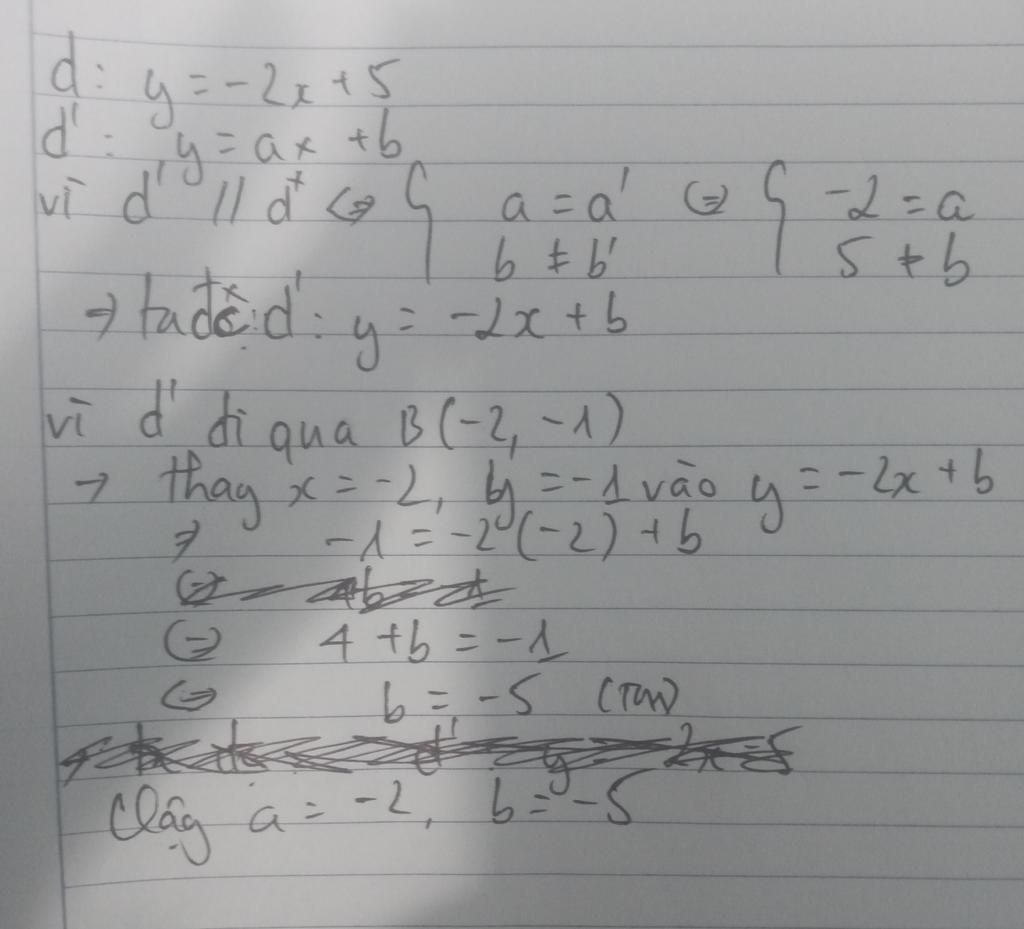 d: y = -2x + 5
d': y = ax + b
vì d' // d <=> { a = a' <=> { -2 = a
b ≠ b' 5 ≠ b
=> ta đc: d': y = -2x + b
vì d' đi qua B(-2, -1)
-> thay x = -2, y = -1 vào y = -2x + b
=> -1 = -2(-2) + b
<=> 4 + b = -1
<=> b = -5 (TM)
Vậy a = -2, b = -5